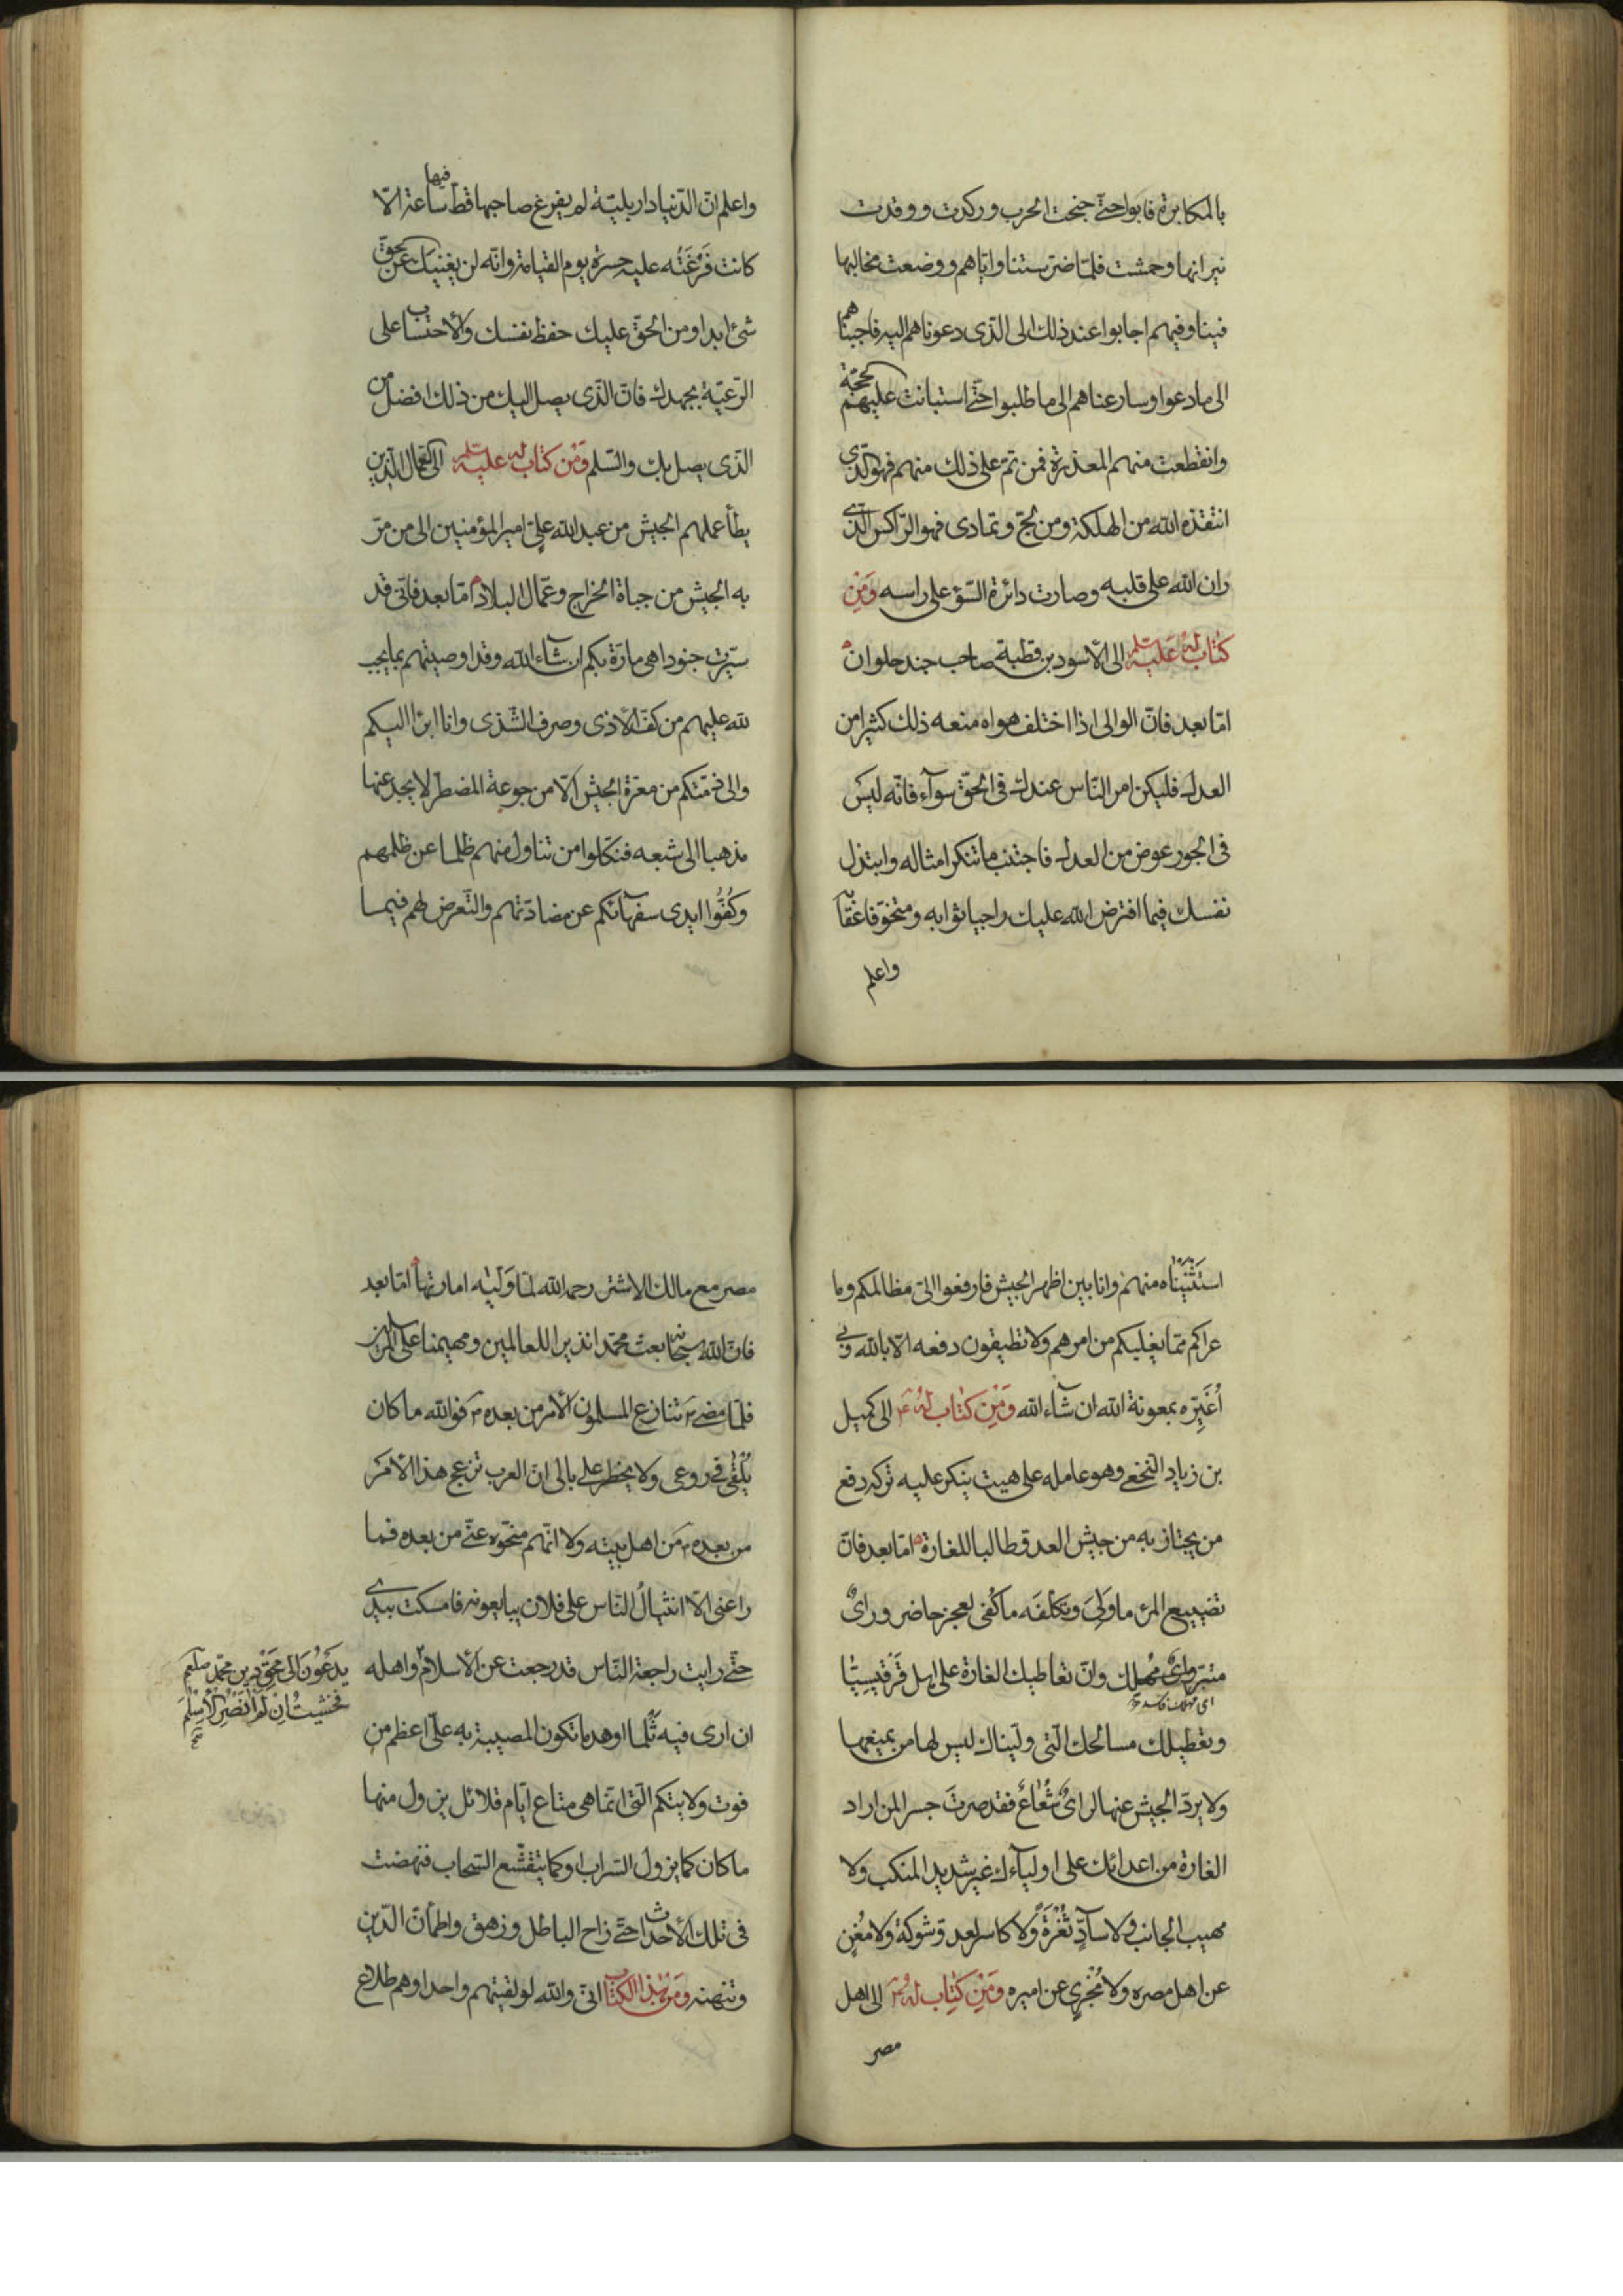 بالمكابرة فابوا حتّى جنحت الحرب و ركدت و وقدت
نيرانها و حمشت فلمّا ضرّستنا و ايّاهم و وضعت مخالبها
فينا و فيهم اجابوا عند ذلك الى الذى دعوناهم اليه فاجبناهم
الى ما دعوا و سارعناهم الى ما طلبوا حتّى استبانت عليهم الحجّة
و انقطعت منهم المعذرة فمن تمّ على ذلك منهم فهو الذى
انتقذه الله من الهلكة و من لجّ و تمادى فهو الرّاكس الّذى
ران الله على قلبه و صارت دائرة السّوء على راسه وَمِنْ
كتاب لهُ عليه السلم الى الأسود بن قطبة صاحب جند حلوان
امّا بعد فانّ الوالى اذا اختلف هواه منعه ذلك كثيرا من
العدل فليكن امر النّاس عندك فى الحقّ سوآء فانّه ليس
فى الجور عوض من العدل فاجتنب ما تنكر امثاله و ابتذل
نفسك فيما افترض الله عليك راجيا ثوابه و متخوّفا عقابه
واعلم
واعلم انّ الدّنيا دار بليّة لم يفرغ صاحبها قطّ فيها ساعة الّا
كانت فَرْغَتُه عليه حسرة يوم القيامة و انّه لن يغنيك عن الحق
شئ ابدا و من الحقّ عليك حفظ نفسك و الأحتساب على
الرّعيّة بجهدك فانّ الّذى يصل اليك من ذلك افضل من
الّذى يصل بك و السّلم وَمِن كتاب له عليه السلم الى العمّال الّذين
يطأ عملهم الجيش من عبد الله علىّ امير المؤمنين الى من مرّ
به الجيش من جباة الخراج و عمّال البلاد امّا بعد فانّى قد
سيّرت جنودا هى مارّة بكم ان شآء الله و قد اوصيتهم بما يجب
لله عليهم من كفّ الأذى و صرف الشّذى و انا ابرا اليكم
و الى ذمّتكم من معرّة الجيش الّا من جوعة المضطرّ لا يجد عنها
مذهبا الى شبعه فنكّلوا من تناول منهم ظلما عن ظلمهم
و كُفُّوا ايدى سفهآئكم عن مضادّتهم و التّعرض لهم فيما
استَثْنَيْنَاه منهم و انا بين اظهر الجيش فارفعوا الىّ مظالمكم و ما
عراكم ممّا يغلبكم من امرهم و لا تطيقون دفعه الّا بالله و بى
أُغَيِّرْه بمعونة الله ان شآء الله وَمِنْ كتاب لهُ ع الى كميل
بن زياد النّخعى و هو عامله على هيت ينكر عليه تركه دفع
من يجتاز به من جيش العدو طالبا للغارة امّا بعد فانّ
تضييع المرء ما وَلِىَ و تكلّفَه ما كُفى لعجز حاضر و رائٌ
متبّر و رائٌ مُهلك و انّ تعاطيك الغارة على اهل قَرْقِيسِيَا
و تعطيلك مسالحك الّتى ولّيناك ليس لها من يمنعها
و لا يردّ الجيش عنها لرائٌ شَعَاعٌ فقد صرتَ جسرا لمن اراد
الغارة من اعدائك على اوليآءك غير شديد المنكب و لا
مهيب الجانب و لا سآدٍّ ثُغْرَةً و لا كاسر لعدو شوكة و لا مُغْنٍ
عن اهل مصره و لا مُجْزٍى عن اميره وَمِنْ كِتاب لهُ ع الى اهل
مصر
مصر مع مالك الاشتر رحمه الله لمّا وَلّيه امارتها امّا بعد
فانّ الله سبحانه بعث محمّدا نذيرا للعالمين و مهيمنا على المرسلين
فلمّا مضى ع تنازع المسلمون الأمر من بعده ع فوالله ما كان
يُلْقٰى فى روعى و لا يخطر على بالى انّ العرب تزعج هذا الأمر
من بعده ع من اهل بيته و لا انّهم منحّوه عنّى من بعده فما
راعنى الّا انثيالُ النّاس على فلان يبايعونه فامسكت بيدى
حتّى رايت راجعة النّاس قد رجعت عن الأسلام و اهله
يدعُونَ الى محقِ دين محمّد صلعم
فخشيتُ ان لم انصُرِ الأسلم
ان ارى فيه ثلما او هدما تكون المصيبة به علىّ اعظم من
فوت ولايتكم الّتى انّما هى متاع ايّام قلائل يزول منها
ما كان كما يزول السّراب او كما يتقشّع السّحاب فنهضت
فى تلك الأحداث حتّى زاح الباطل و زهق و اطمأنّ الدّين
و تنهنه وَمِنْ هٰذا الكتاب انّى و الله لو لقيتهم واحدا و هم طلاع